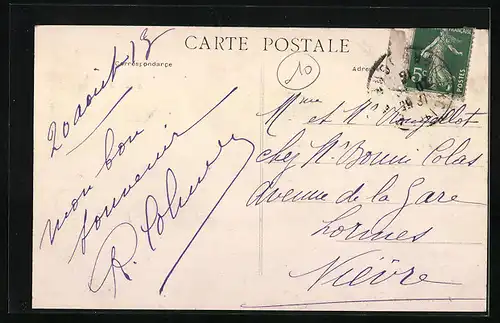 CARTE POSTALE
Correspondance
Adre
10
5c
POSTES
20 août 13
mon bon
souvenir
R.
Mme et Mr
chez Mr Bonni Colas
Avenue de la Gare
Lormes
Nièvre